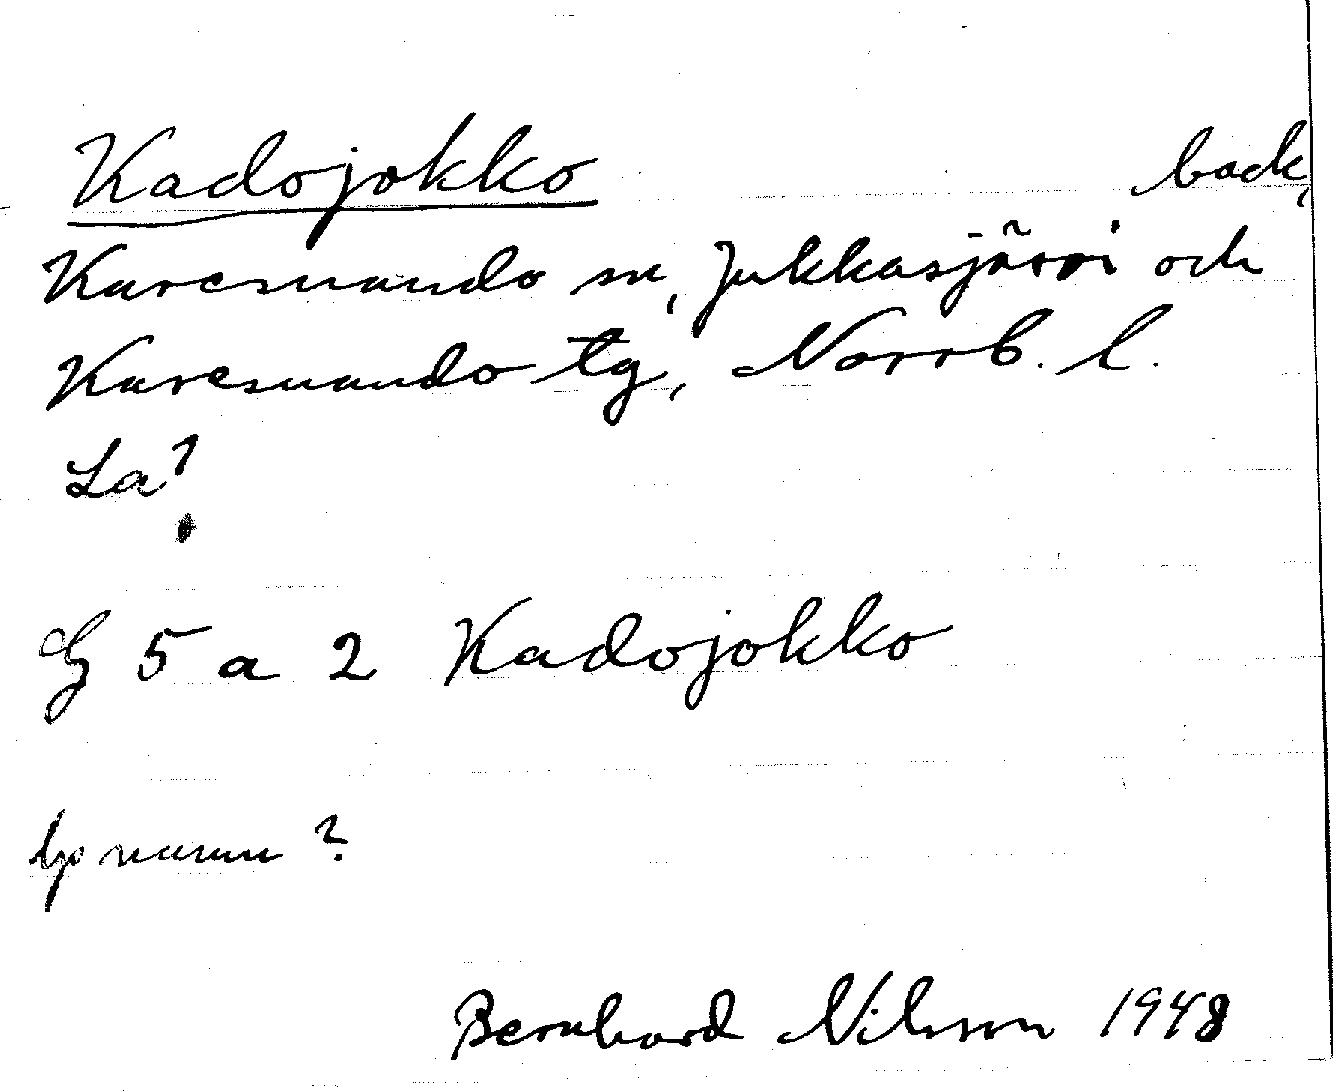 Kadojokko bäck,
Karesuando sn, Jukkasjärvi och
Karesuando tg, Norrb. l.
La?
G 5 a 2 Kadojokko
lp namn?
Bernhard Nilsson 1948